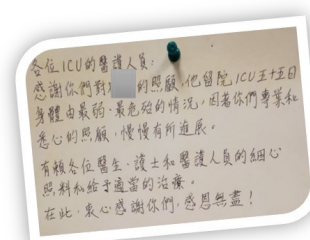 各位ICU的醫護人員:
感謝你們對 的照顧,他留院ICU五十五日
身體由最弱、最危殆的情況,因著你們專業和
悉心的照顧,慢慢有所進展。
有賴各位醫生、護士和醫護人員的細心
照料和給予適當的治療。
在此,衷心感謝你們,感恩無盡!